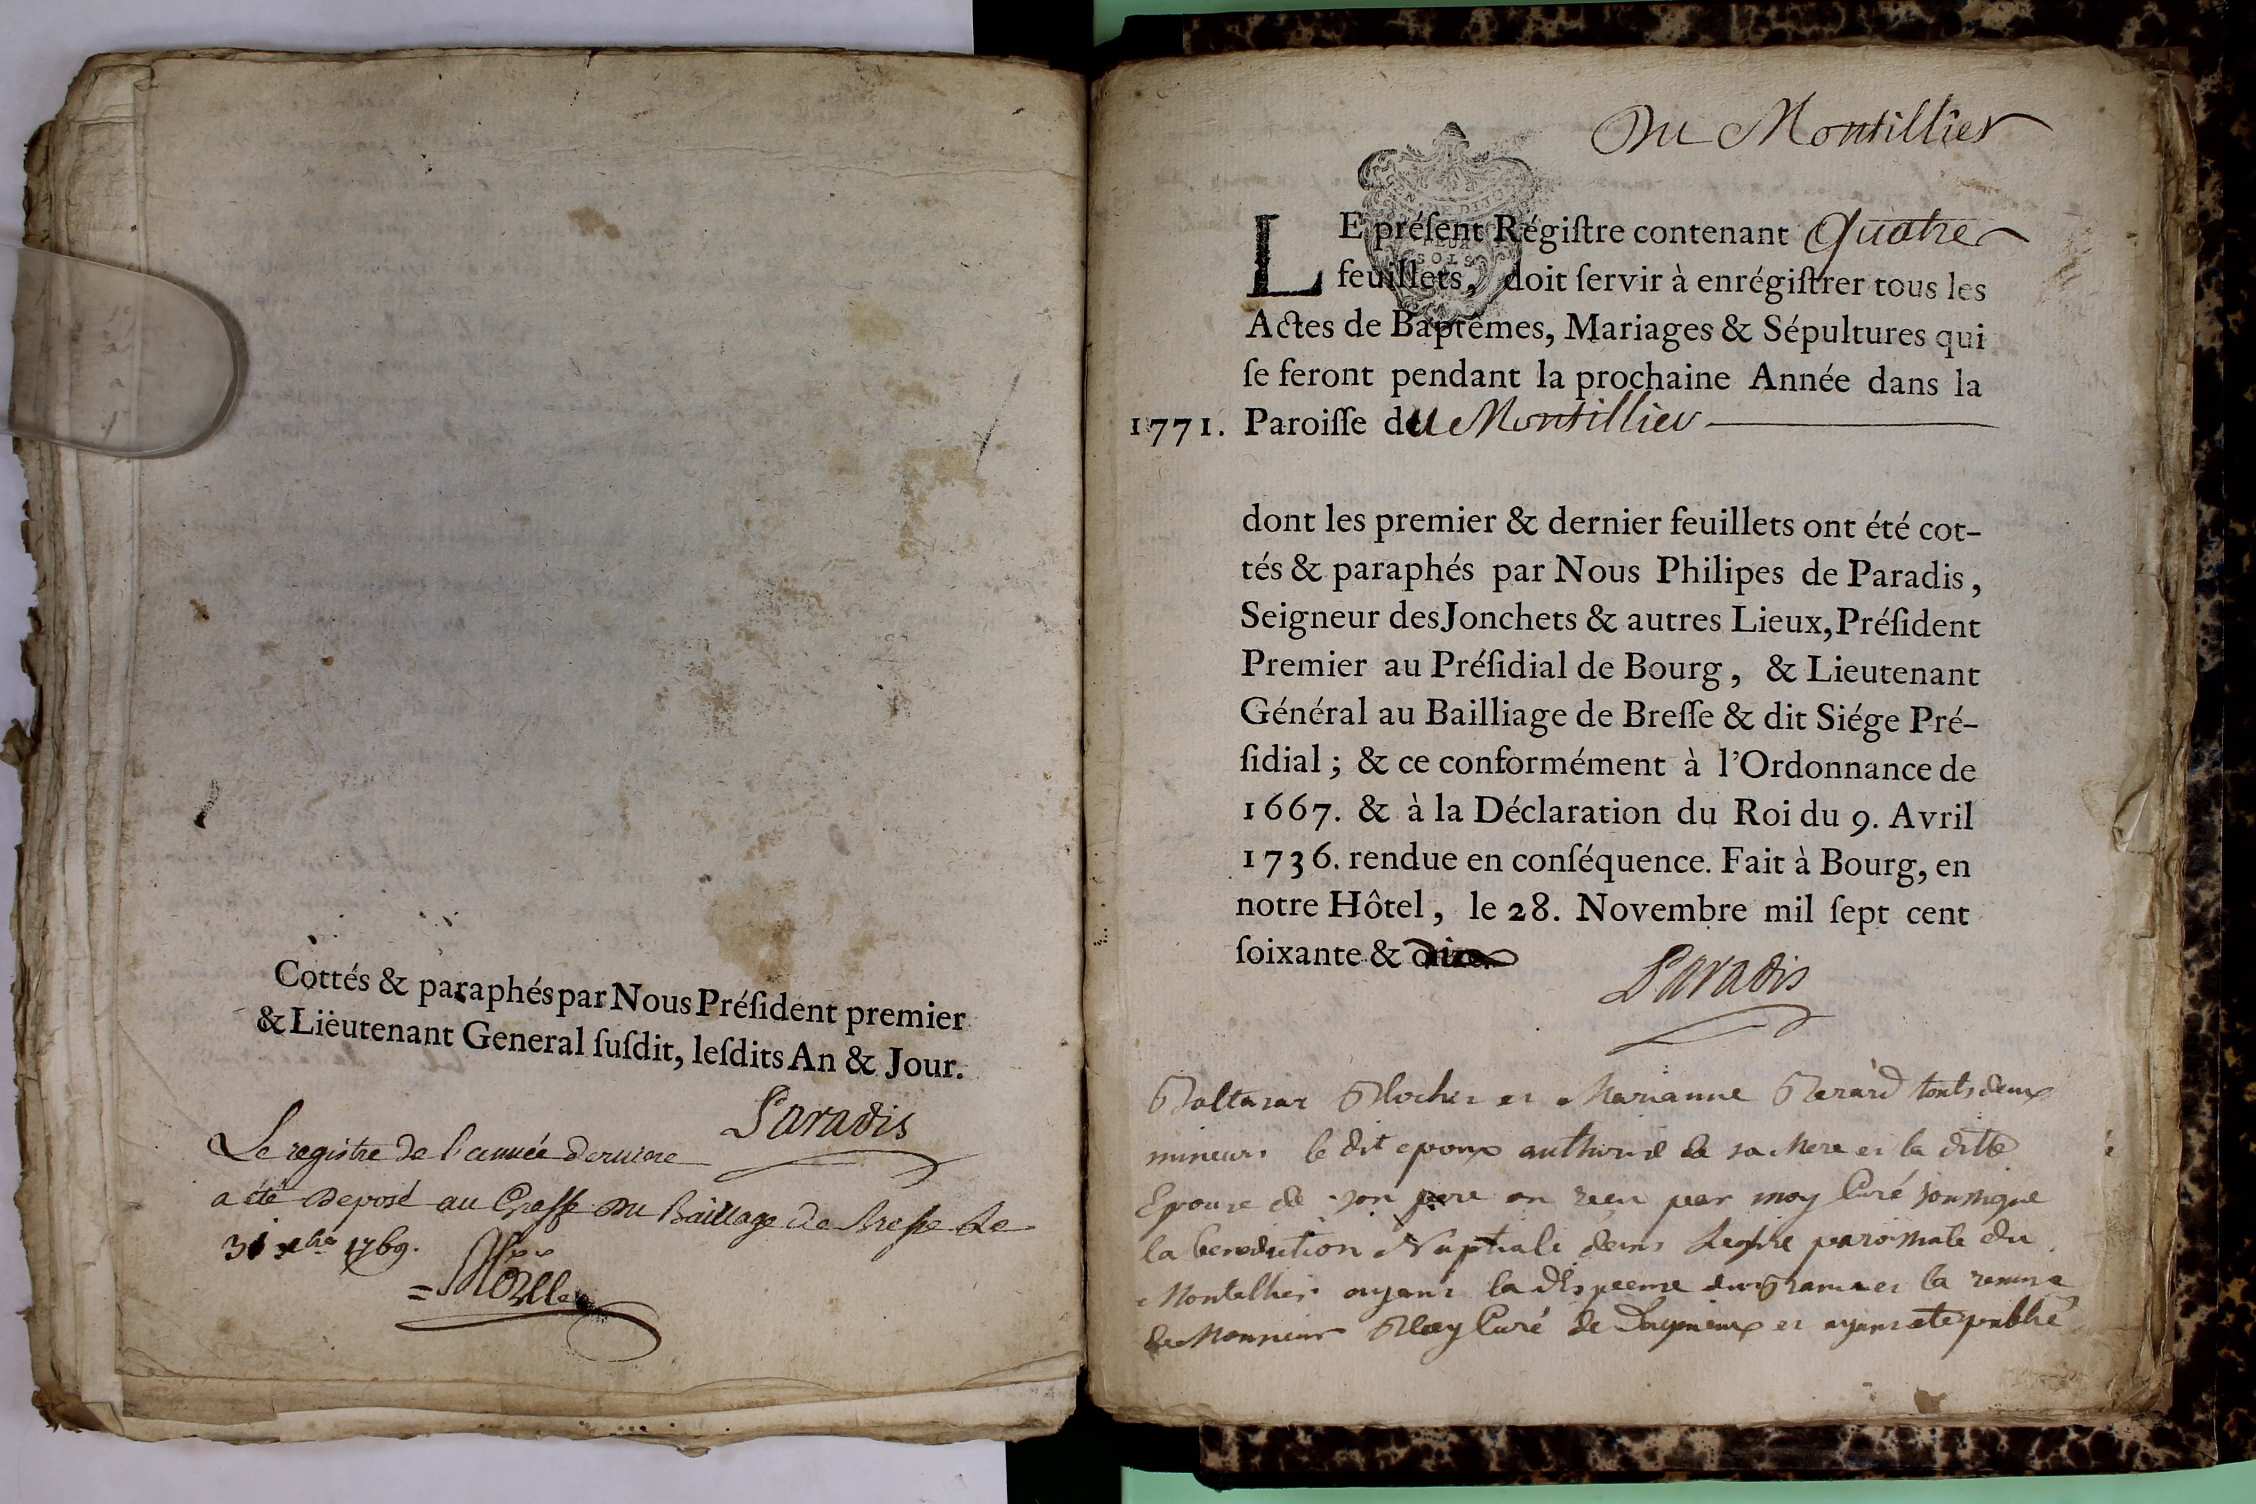 Cottés & paraphés par Nous Préſident premier
& Liëutenant General ſuſdit, leſdits An & Jour.
Paradis
Le registre de l'année derniere
a été deposé au Greffe du Bailliage de Bresse le
31 xbre 1769.
Du Montillier
DEUX
SOLS
LE préſent Régiſtre contenant Quatre
feuillets, doit ſervir à enrégiſtrer tous les
Actes de Baptêmes, Mariages & Sépultures qui
ſe feront pendant la prochaine Année dans la
1771. Paroiſſe du Montillier
dont les premier & dernier feuillets ont été cot-
tés & paraphés par Nous Philipes de Paradis,
Seigneur des Jonchets & autres Lieux, Préſident
Premier au Préſidial de Bourg, & Lieutenant
Général au Bailliage de Breſſe & dit Siége Pré-
ſidial; & ce conformément à l'Ordonnance de
1667. & à la Déclaration du Roi du 9. Avril
1736. rendue en conſéquence. Fait à Bourg, en
notre Hôtel, le 28. Novembre mil ſept cent
ſoixante & dix
Paradis
Baltasar et Marianne touts deux
mineurs le dit epoux authorisé de sa Mere et la ditte
Epouse de son pere on reçu par moy Curé soussigné
la benediction Nuptiale dans paroissiale du
Montellier ayant la dispense et la remise
de Monsieur Curé de et ayant eté publié